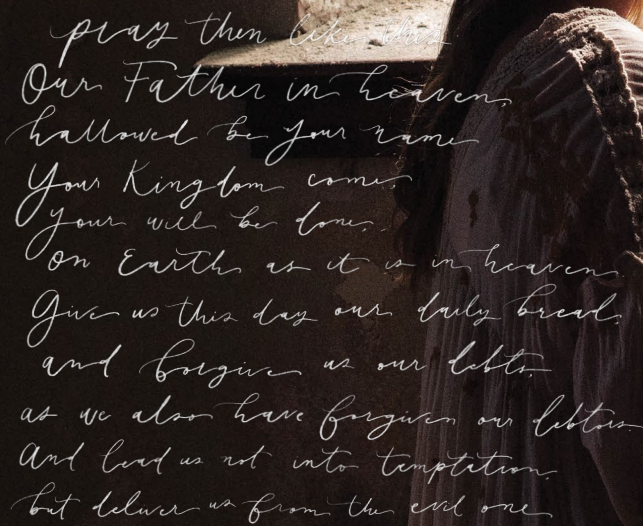 pray then like this
Our Father in heaven,
hallowed be your name
Your Kingdom come,
your will be done,
on Earth as it is in heaven.
Give us this day our daily bread,
and forgive us our debts,
as we also have forgiven our debtors
And lead us not into temptation,
but deliver us from the evil one